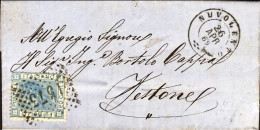 NUVOLERA
26
APR
All'Egregio Signore
Il Sig. Ing. Bortolo Cappa
Vestone